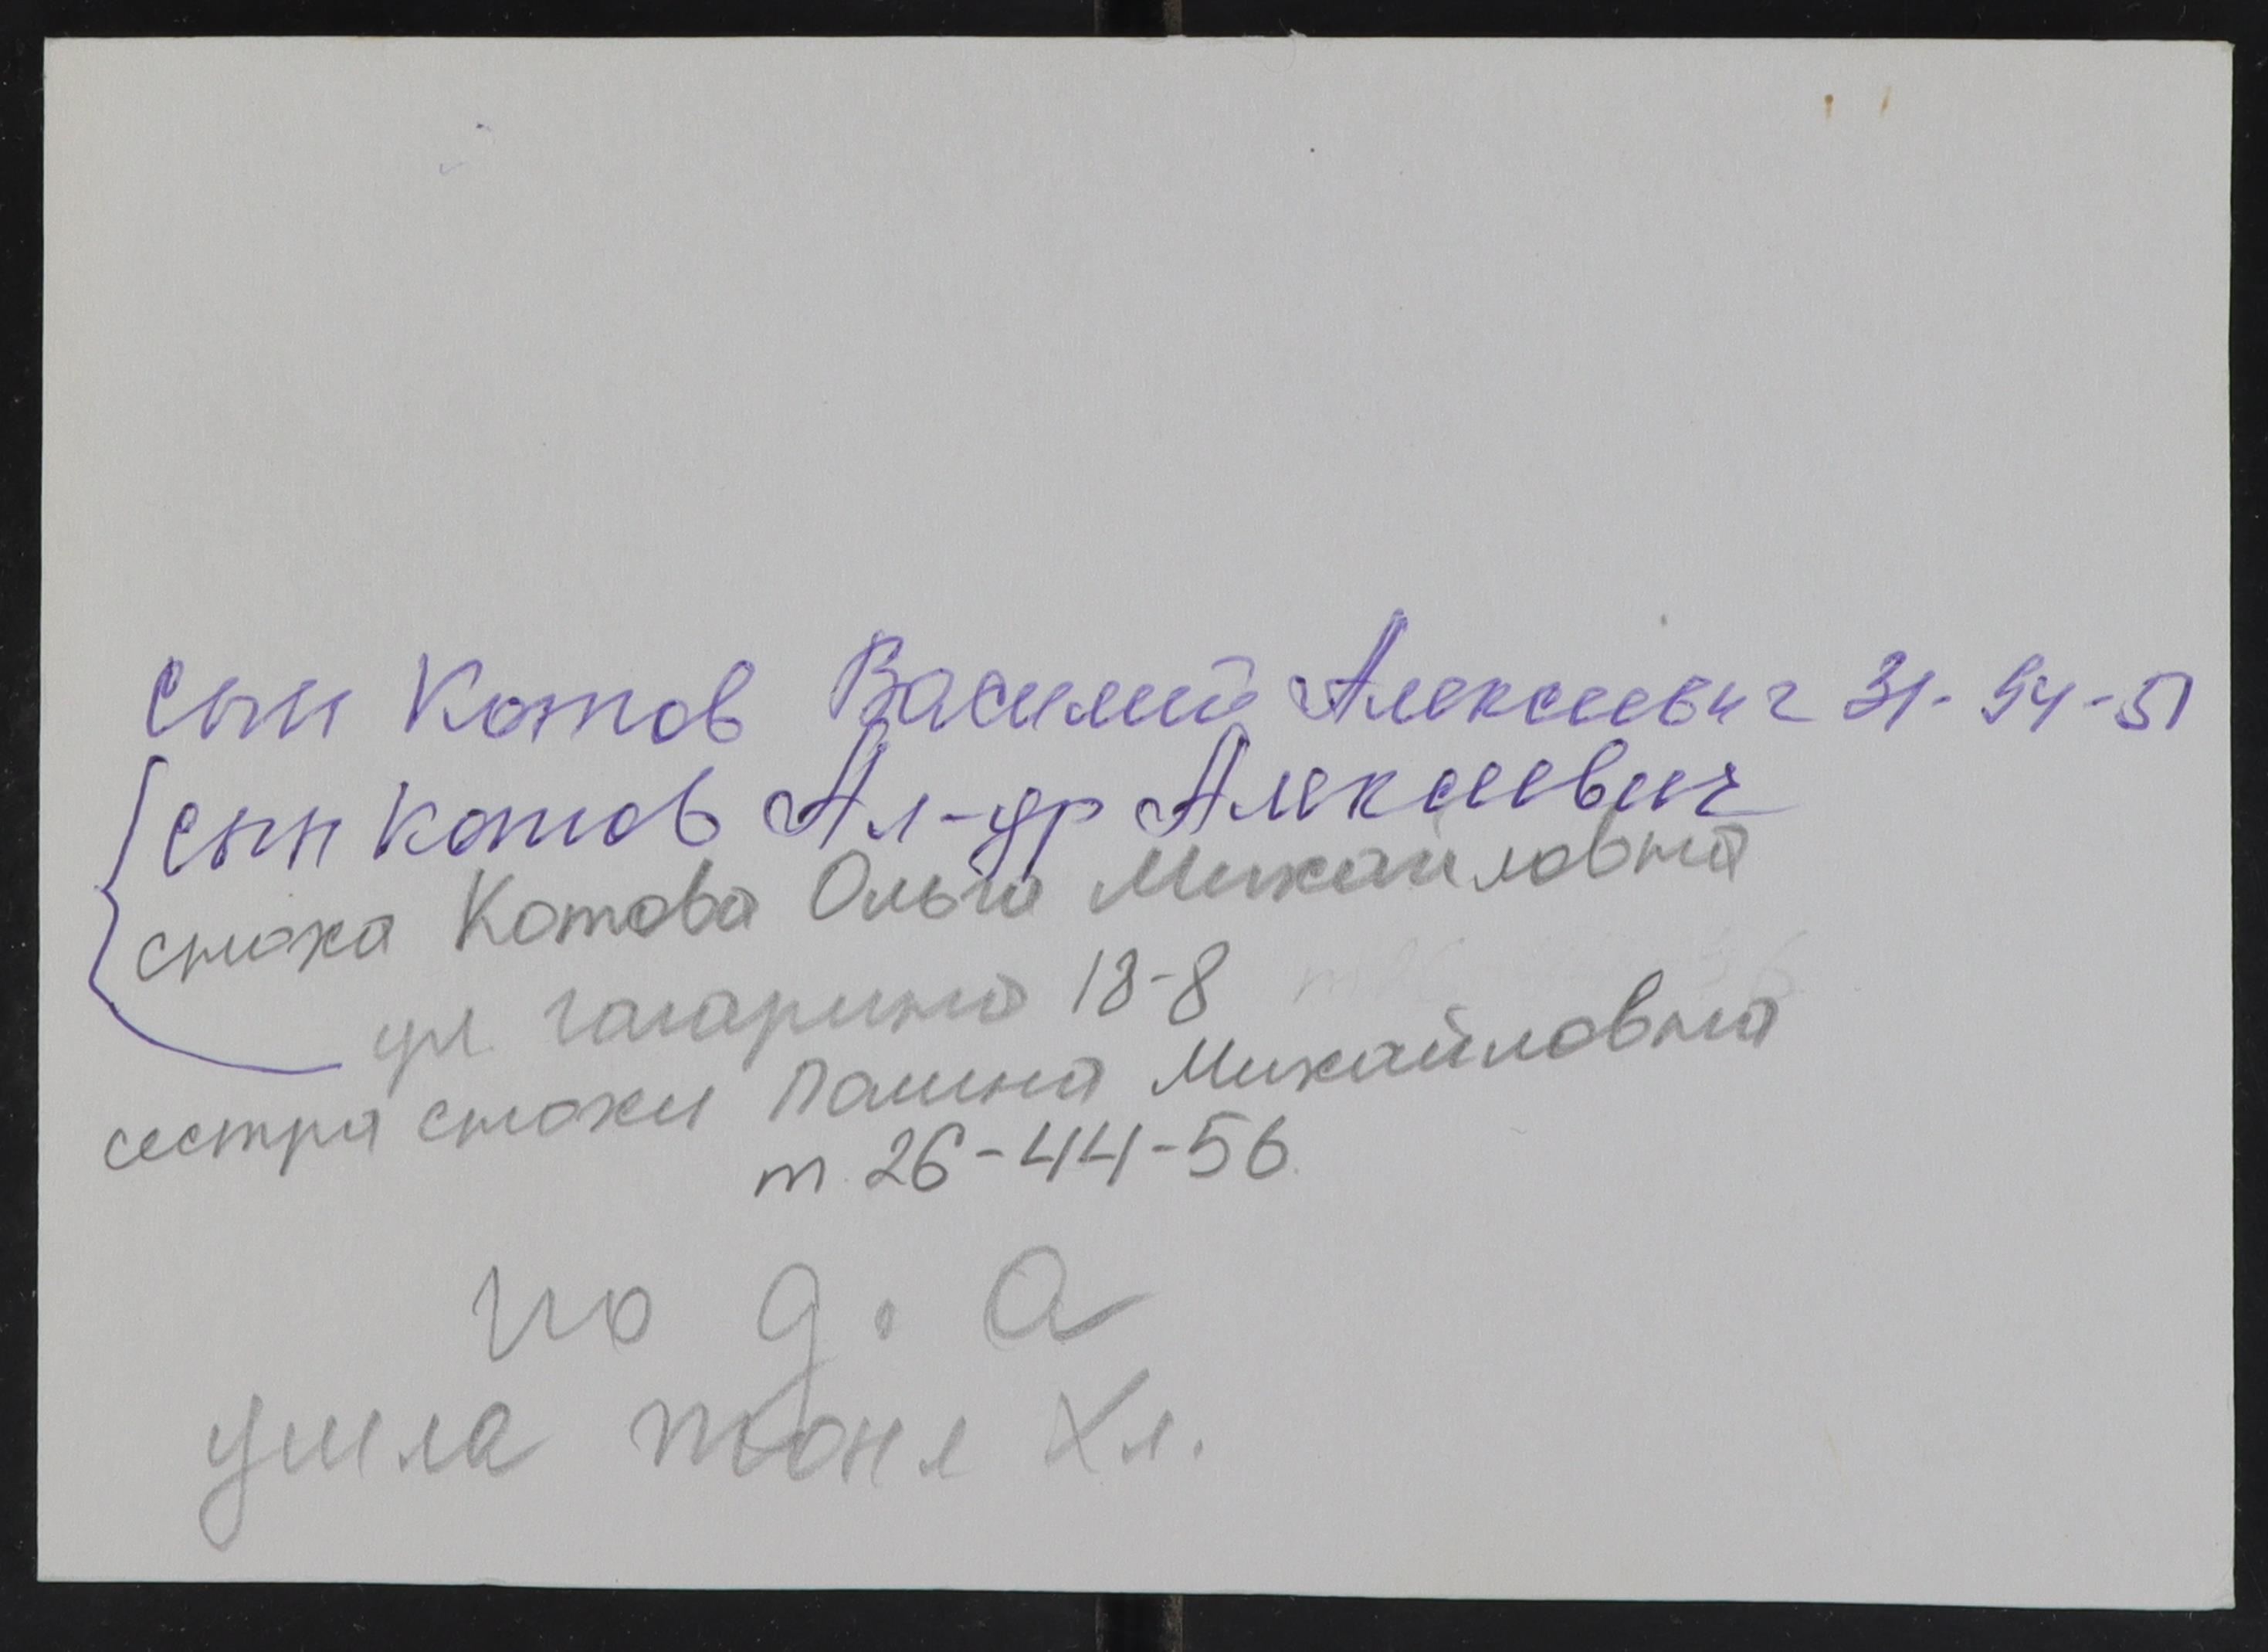 сын Котов Василий Алексеевич 31-54-51
сын Котов Ал-др Алексеевич
сноха Котова Ольга Михайловна
ул. Гагарина 18-8
сестра снохи Полина Михайловна
т. 26-44-56.
по д. а
ушла тоня Хл.